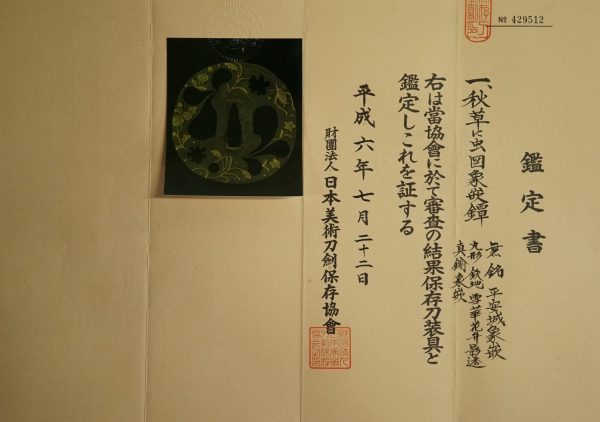 № 429512
鑑定書
一、秋草に虫図象嵌鐔
無銘 平安城象嵌
丸形 鉄地 雪華花弁影透
真鍮象嵌
右は當協會に於て審査の結果保存刀装具と
鑑定しこれを証する
平成六年七月二十二日
財團法人日本美術刀劍保存協會